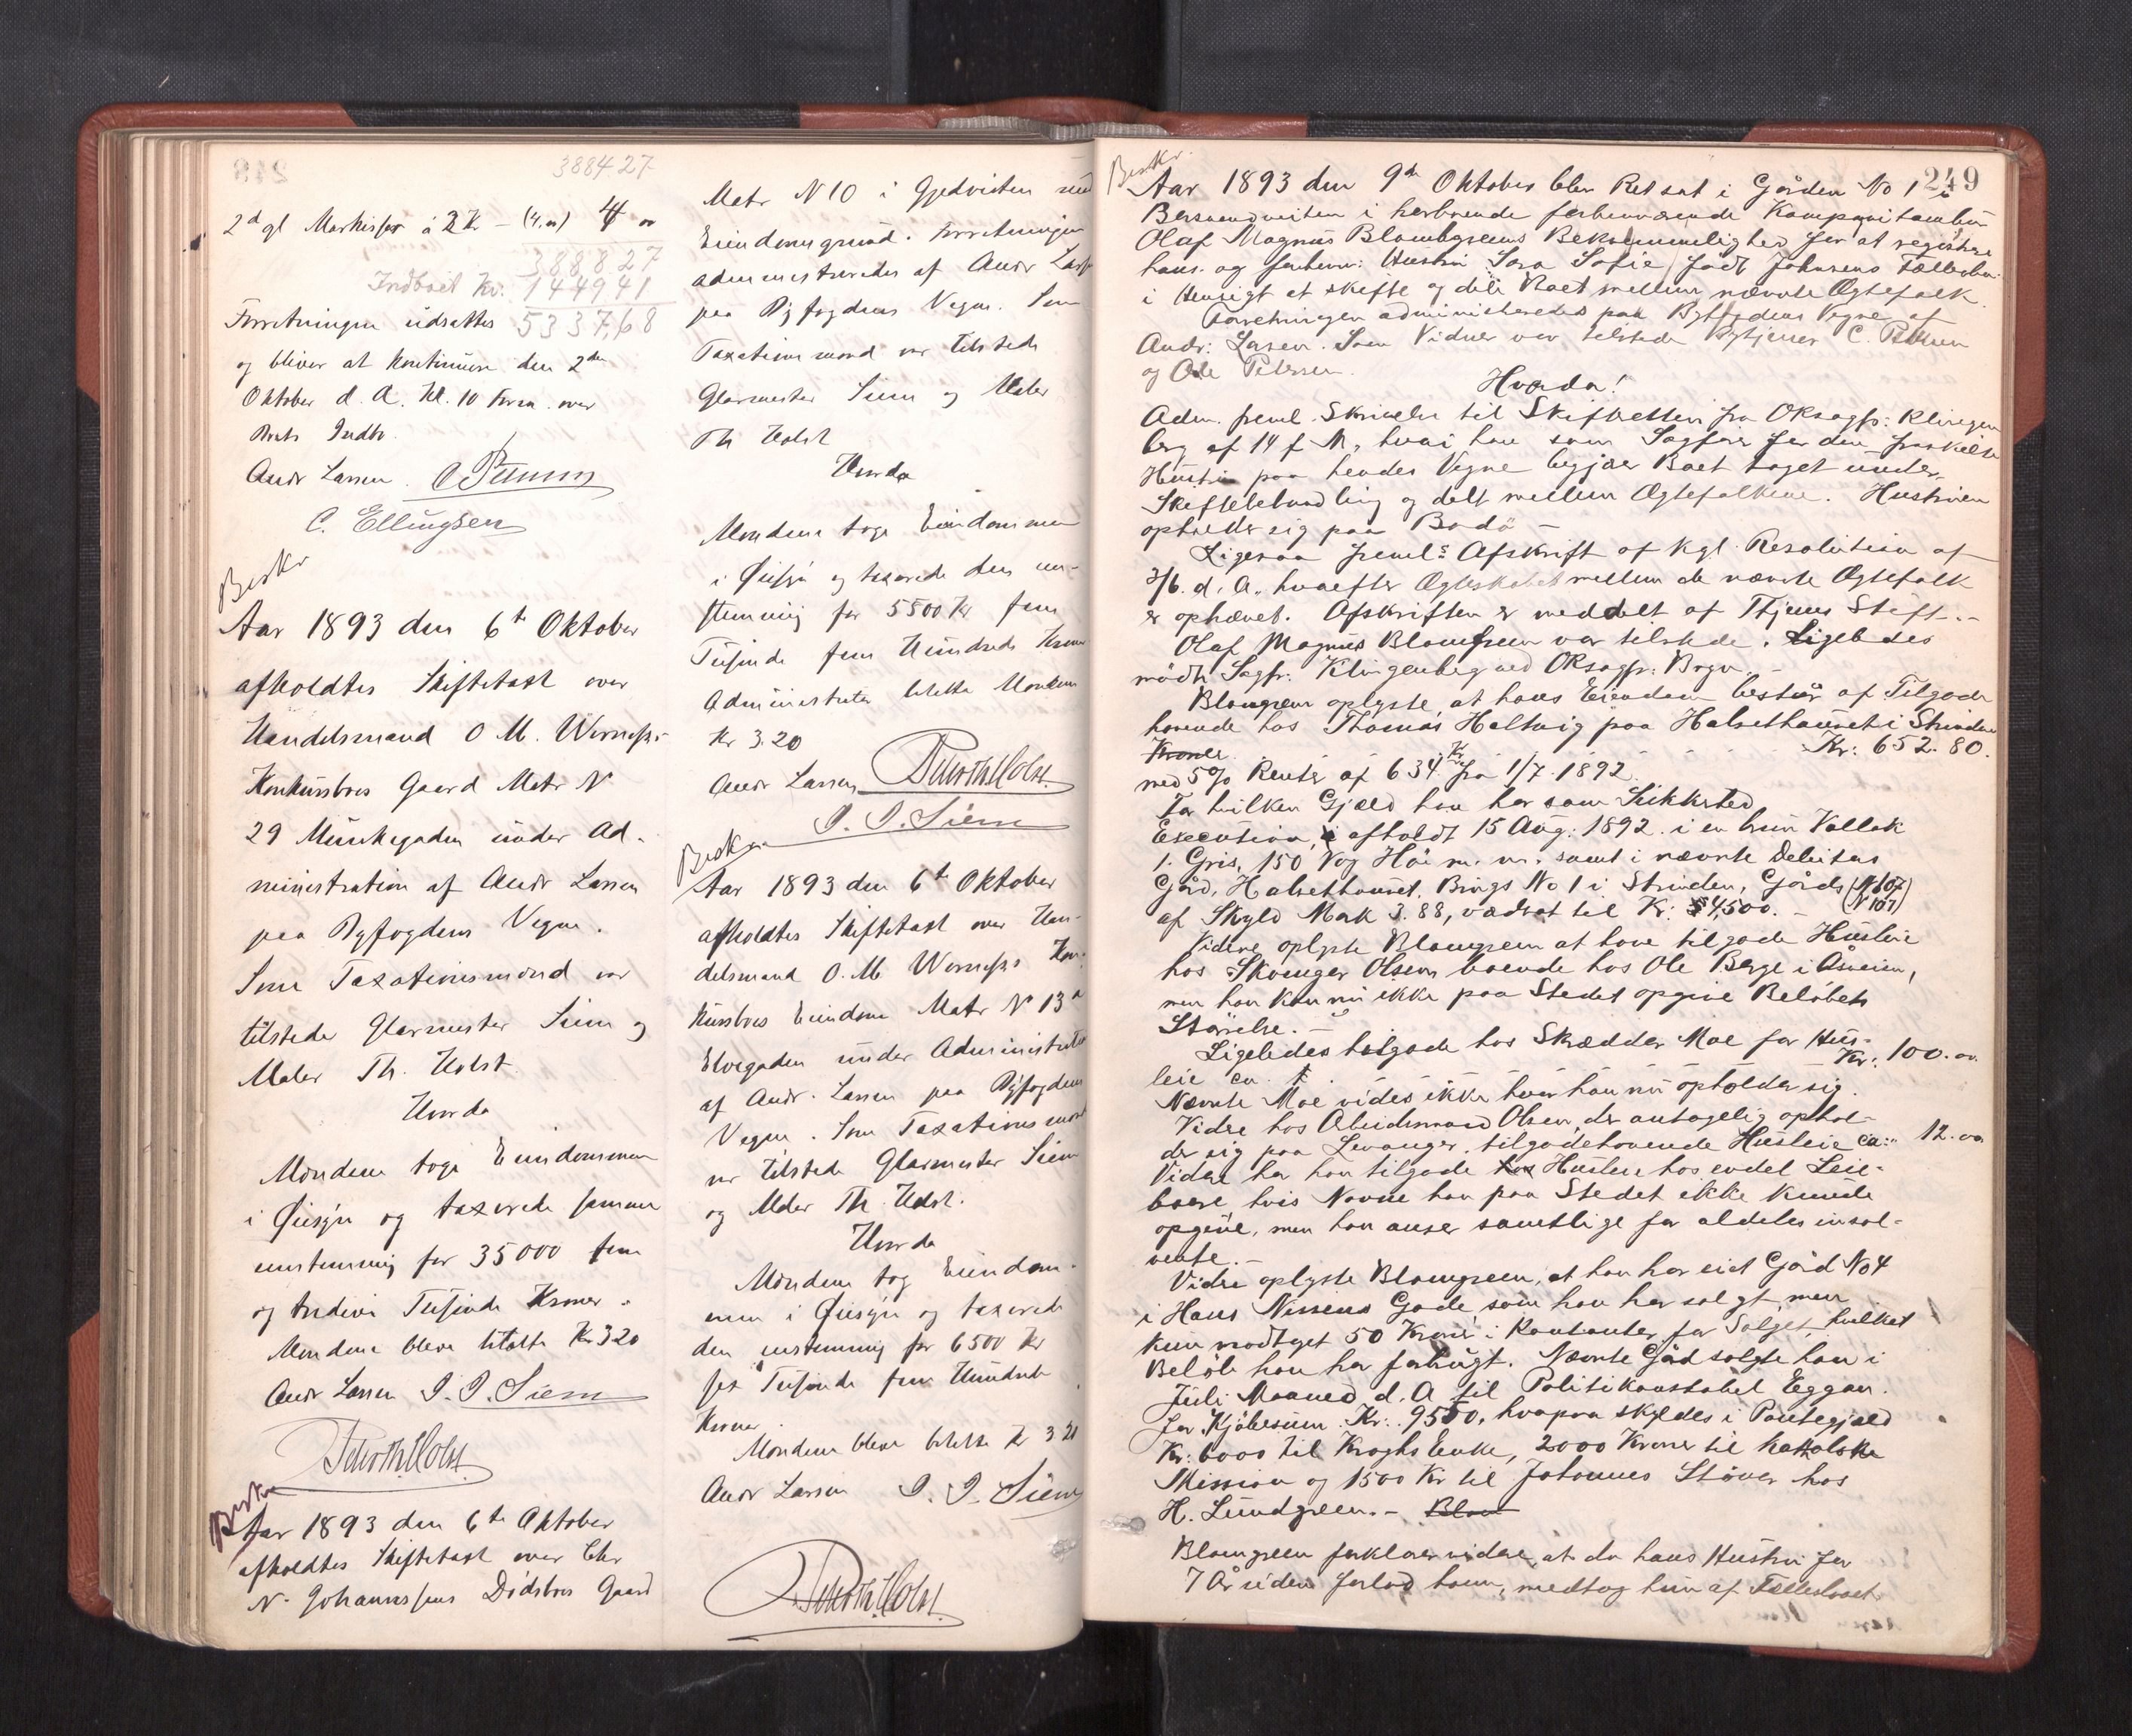 388427
2d gl Markisser á 2 Kr – (4,00) 4 00
388827
Indboet Kr. 144941
Forretningen udsattes 5337,68
og bliver at kontinuere den 2den
Oktober d. A. Kl. 10 Form. over
Indbo.
Andr Larsen. C Petersen
C. Ellingsen
Beskr
Aar 1893 den 6te Oktober
afholdtes Skiftetaxt over
Handelsmand O M. Wernesses
Konkursboes Gaard Matr N
29 Munkegaden under Ad-
ministration af Andr Larsen
paa Byfogdens Vegne.
Som Taxationsmænd var
tilstede Glarmester Siem og
Maler Th. Holst
Hvorda
Mændene toge Eiendommen
i Øiesyn og taxerede samme
enstemmig for 35000 fem
og tredive Tusinde Kroner.
Mændene bleve betalte Kr 3 20
Andr Larsen I. I. Siem
Th. Holst
Beskr
Aar 1893 den 6te Oktober
afholdtes Skiftetaxt over Chr
N. Johannesens Dødsboes Gaard
Matr N 10 i Gjedvesten med
Eiendomsgrund. Forretningen
administreredes af Andr Lars
paa Byfogdens Vegne. Som
Taxationsmænd var tilstede
Glarmester Siem og Maler
Th Holst
Hvorda
Mændene toge Eiendommen
i Øiesyn og taxerede den en-
stemmig for 5500 Kr fem
Tusinde fem Hundrede Kroner
Administrator betalte Mændene
Kr 3.20
Andr Larsen Th. Holst.
I. I. Siem
Beskr
Aar 1893 den 6te Oktober
afholdtes Skiftetaxt over Han-
delsmand O. M Wernesses Kon-
kursboes Eiendom Matr N 13a
Elvegaden under Administration
af Andr. Larsen paa Byfogdens
Vegne. Som Taxationsmænd
var tilstede Glarmester Siem
og Maler Th. Holst.
Hvorda
Mændene tog Eiendom-
men i Øiesyn og taxerede
den enstemmig for 6500 Kr
sex Tusinde fem Hundrede
Kroner.
Mændene bleve betalte Kr 3 20
Andr Larsen I. I. Siem
Th. Holst.
249
Beskr.
Aar 1893 den 9de Oktober blev Ret sat i Gården No 1 i
i herboende forhenværende
Olaf Magnus Blomgreens Bekvemmelighed for at registrere
hans og forhenv: Hustru Sara Sofie født Johnsens Fællesbo
i Hensigt at skifte og dele Boet mellem nævnte Ægtefolk.
Forretningen administreredes paa Byfogdens Vegne af
Andr: Larsen. Som Vidner var tilstede Bytjener C. Petersen
og Ole Petersen.
Hvorda!
Adm. freml. Skrivelse til Skifteretten fra OKsagfr: Klingen
berg af 14 f M, hvori han som Sagfører for den fraskilte
Hustru paa hendes Vegne begjær Boet taget under
Skiftebehandling og delt mellem Ægtefolkene. Hustruen
opholder sig paa Bodö –
Ligesaa freml: Afskrift af kgl. Resolution af
3/6. d. A., hvorefter Ægteskabet mellem de nævnte Ægtefolk
er ophævet. Afskriften er meddelt af Thjems Stift. –
Olaf Magnus Blomgreen var tilstede. Ligeledes
mödte Sagfr. Klingenberg ved OKsagfr. Bryn. –
Blomgreen oplyste, at hans Eiendom består af Tilgode
havende hos Thomas Haltvig paa Halsethauret i Strinden
Kroner. Kr: 652. 80.
med 5% Renter af 634 Kr fra 1/7. 1892.
For hvilken Gjæld han har som Sikkerhed
Execution, afholdt 15 Aug: 1892. i en brun Vallak
1. Gris, 150 Vog Höi m. m. samt i nævnte Debitors
Gård, Halsethauret, Brugs No 1 i Strinden, Gårds (N 107)
af Skyld Mark 3.88, værdsat til Kr: 4,500. –
Videre oplyste Blomgreen at have tilgode Husleie
hos Olsen boende hos Ole Berge i Åsveien,
men han kan nu ikke paa Stedet opgive Belöbets
Störrelse. –
Ligeledes tilgode hos Skrædder Moe for Hus-
leie ca. Kr: 100. 00
Nævnte Moe vides ikke hvor han nu opholder sig.
Videre hos Arbeidsmand Olsen, der antagelig ophol-
der sig paa Levanger, tilgodehavende Husleie ca: 12. 00
Videre har han tilgode hos Husleie hos endel Leie-
boere, hvis Navne han paa Stedet ikke kunde
opgive, men han anser samtlige for aldeles insol-
vente. –
Videre oplyste Blomgreen, at han har eiet Gård No 4
i Hans Nissens Gade, som han har solgt, men
kun modtaget 50 Kroner i Kontanter for Salget, hvilket
Belöb han har forbrugt. Nævnte Gård solgte han i
Juli Maaned d. A til Politikonstabel Eggan.
for Kjöbesum. Kr: 9550, hvorpaa skyldes i Pantegjæld
Kr: 6000 til Kroghs Enke, 2000 Kroner til katolske
Mission og 1500 Kr til Johannes Stöver hos
H. Lundgreen. – Blom
Blomgreen forklarer videre, at da hans Hustru for
7 År siden forlod ham, medtog hun af Fællesboet